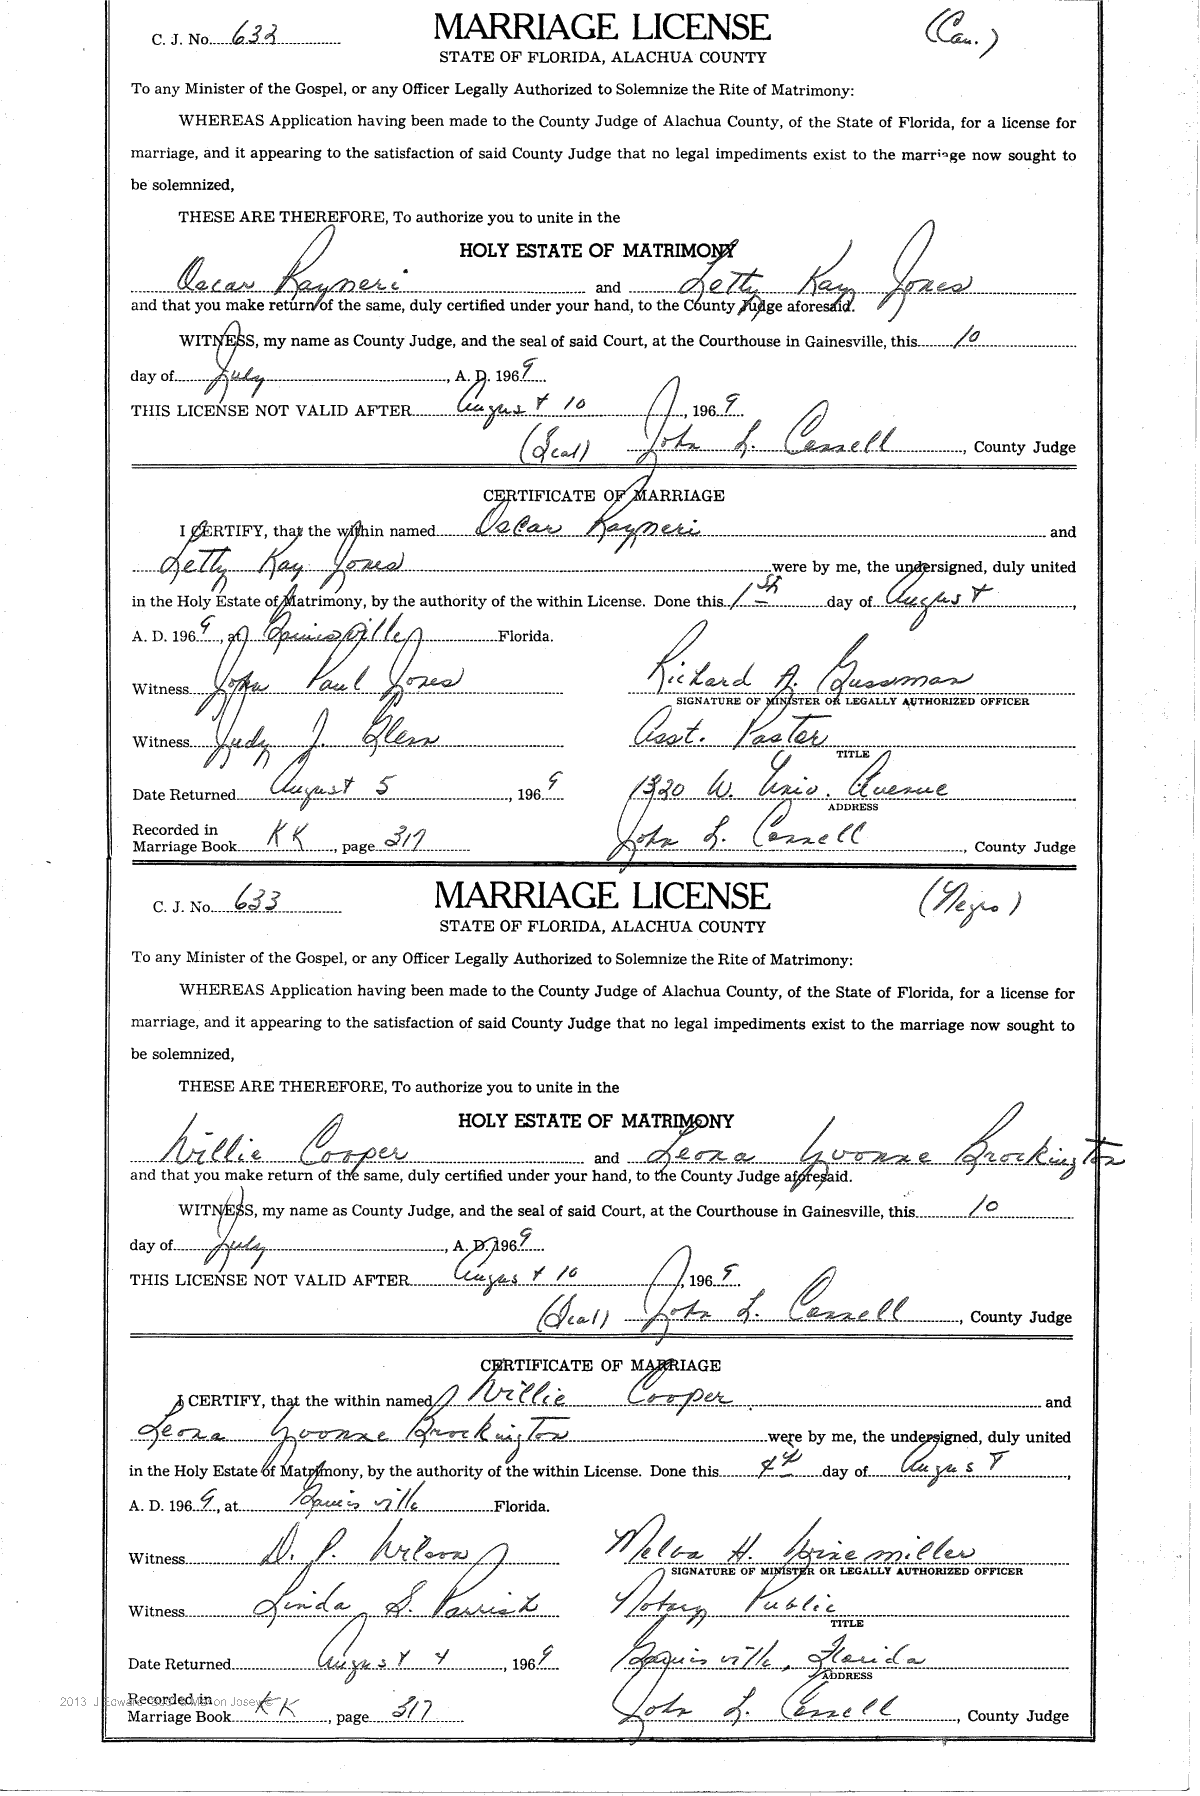 C. J. No. 632
MARRIAGE LICENSE
(Cau.)
STATE OF FLORIDA, ALACHUA COUNTY
To any Minister of the Gospel, or any Officer Legally Authorized to Solemnize the Rite of Matrimony:
WHEREAS Application having been made to the County Judge of Alachua County, of the State of Florida, for a license for
marriage, and it appearing to the satisfaction of said County Judge that no legal impediments exist to the marriage now sought to
be solemnized,
THESE ARE THEREFORE, To authorize you to unite in the
HOLY ESTATE OF MATRIMONY
Oscar Rayneri and Letty Kay Jones
and that you make return of the same, duly certified under your hand, to the County Judge aforesaid.
WITNESS, my name as County Judge, and the seal of said Court, at the Courthouse in Gainesville, this 10
day of July, A. D. 1969
THIS LICENSE NOT VALID AFTER August 10, 1969
(Seal) John L. Connell, County Judge
CERTIFICATE OF MARRIAGE
I CERTIFY, that the within named Oscar Rayneri and
Letty Kay Jones were by me, the undersigned, duly united
in the Holy Estate of Matrimony, by the authority of the within License. Done this 1st day of August,
A. D. 1969, at Gainesville Florida.
Witness John Paul Jones
Richard A. Gussman
SIGNATURE OF MINISTER OR LEGALLY AUTHORIZED OFFICER
Witness Judy J. Glenn
Asst. Pastor
TITLE
Date Returned August 5, 1969
1320 W. Univ. Avenue
ADDRESS
Recorded in
Marriage Book KK, page 317
John L. Connell, County Judge
C. J. No. 633
MARRIAGE LICENSE
(Negro)
STATE OF FLORIDA, ALACHUA COUNTY
To any Minister of the Gospel, or any Officer Legally Authorized to Solemnize the Rite of Matrimony:
WHEREAS Application having been made to the County Judge of Alachua County, of the State of Florida, for a license for
marriage, and it appearing to the satisfaction of said County Judge that no legal impediments exist to the marriage now sought to
be solemnized,
THESE ARE THEREFORE, To authorize you to unite in the
HOLY ESTATE OF MATRIMONY
Willie Cooper and Leona Yvonne Brockington
and that you make return of the same, duly certified under your hand, to the County Judge aforesaid.
WITNESS, my name as County Judge, and the seal of said Court, at the Courthouse in Gainesville, this 10
day of July, A. D. 1969
THIS LICENSE NOT VALID AFTER August 10, 1969
(Seal) John L. Connell, County Judge
CERTIFICATE OF MARRIAGE
I CERTIFY, that the within named Willie Cooper and
Leona Yvonne Brockington were by me, the undersigned, duly united
in the Holy Estate of Matrimony, by the authority of the within License. Done this 4th day of August,
A. D. 1969, at Gainesville Florida.
Witness D. P. Wilson
Melva H. Winemiller
SIGNATURE OF MINISTER OR LEGALLY AUTHORIZED OFFICER
Witness Linda S. Parrish
Notary Public
TITLE
Date Returned August 4, 1969
Gainesville, Florida
ADDRESS
2013 J Edward
Recorded in
Marriage Book KK, page 317
John L. Connell, County Judge